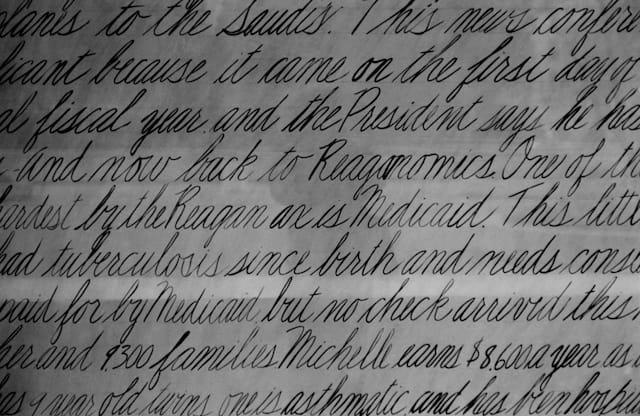 planes to the Saudis. This news confer
licant because it came on the first day of
al fiscal year and the President says he has
And now back to Reaganomics. One of th
hardest by the Reagan ax is Medicaid. This littl
had tuberculosis since birth and needs cons
paid for by Medicaid but no check arrived this
her and 9,300 families Michelle earns $8,600 a year as
has 4 year old twins one is asthmatic and has been hospi